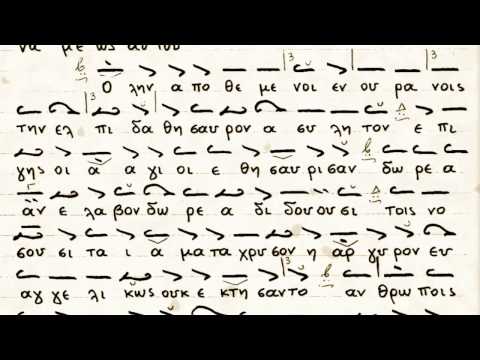 να με ως αυτου
Ο λην α πο θε με νοι εν ου ρα νοις
την ελ πι δα θη σαυ ρον α συ λη τον ε πι
γης οι α α γι οι ε θη σαυ ρι σαν δω ρε α
αν ε λα βον δω ρε α δι δου ου σι τοις νο
σου σι τα ι α μα τα χρυ σον η αρ γυ ρον ευ
αγ γε λι κως ουκ ε κτη σαν το αν θρω ποις